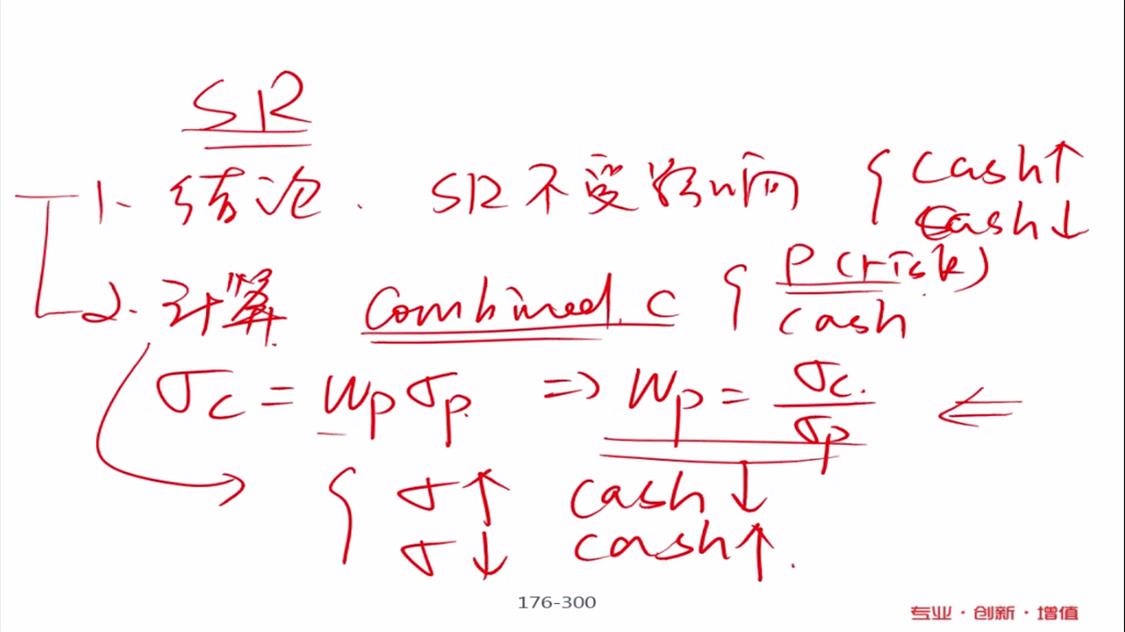 SR
1. 结论. SR不受影响 { cash↑
cash↓
2. 计算 Combined. C { P(risk)
cash
σc = wpσp. => wp = σc. / σp <=
{ σ↑ cash↓
σ↓ cash↑.
176-300
专业·创新·增值